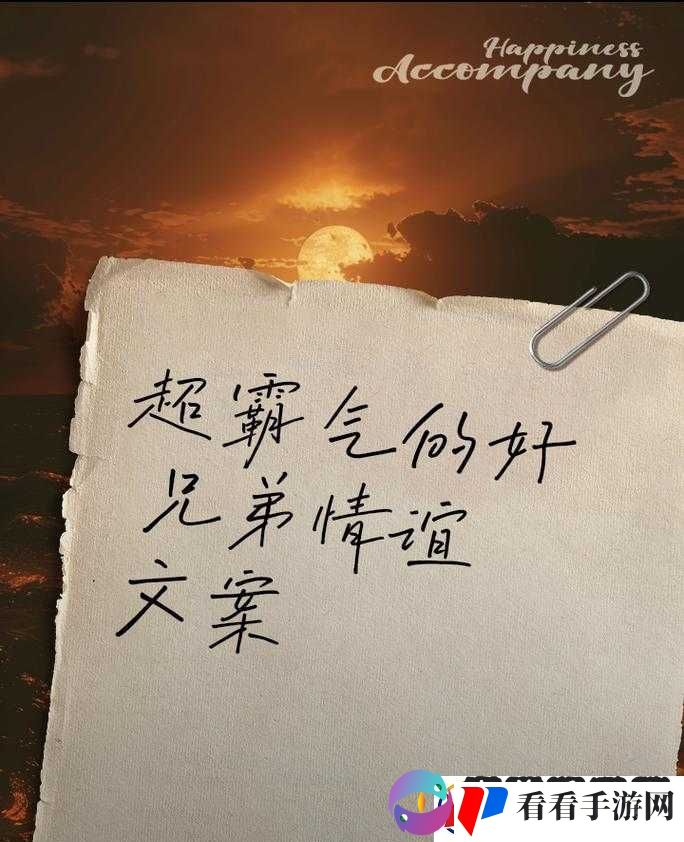 Happiness
Accompany
超霸气的好
兄弟情谊
文案
看看手游网